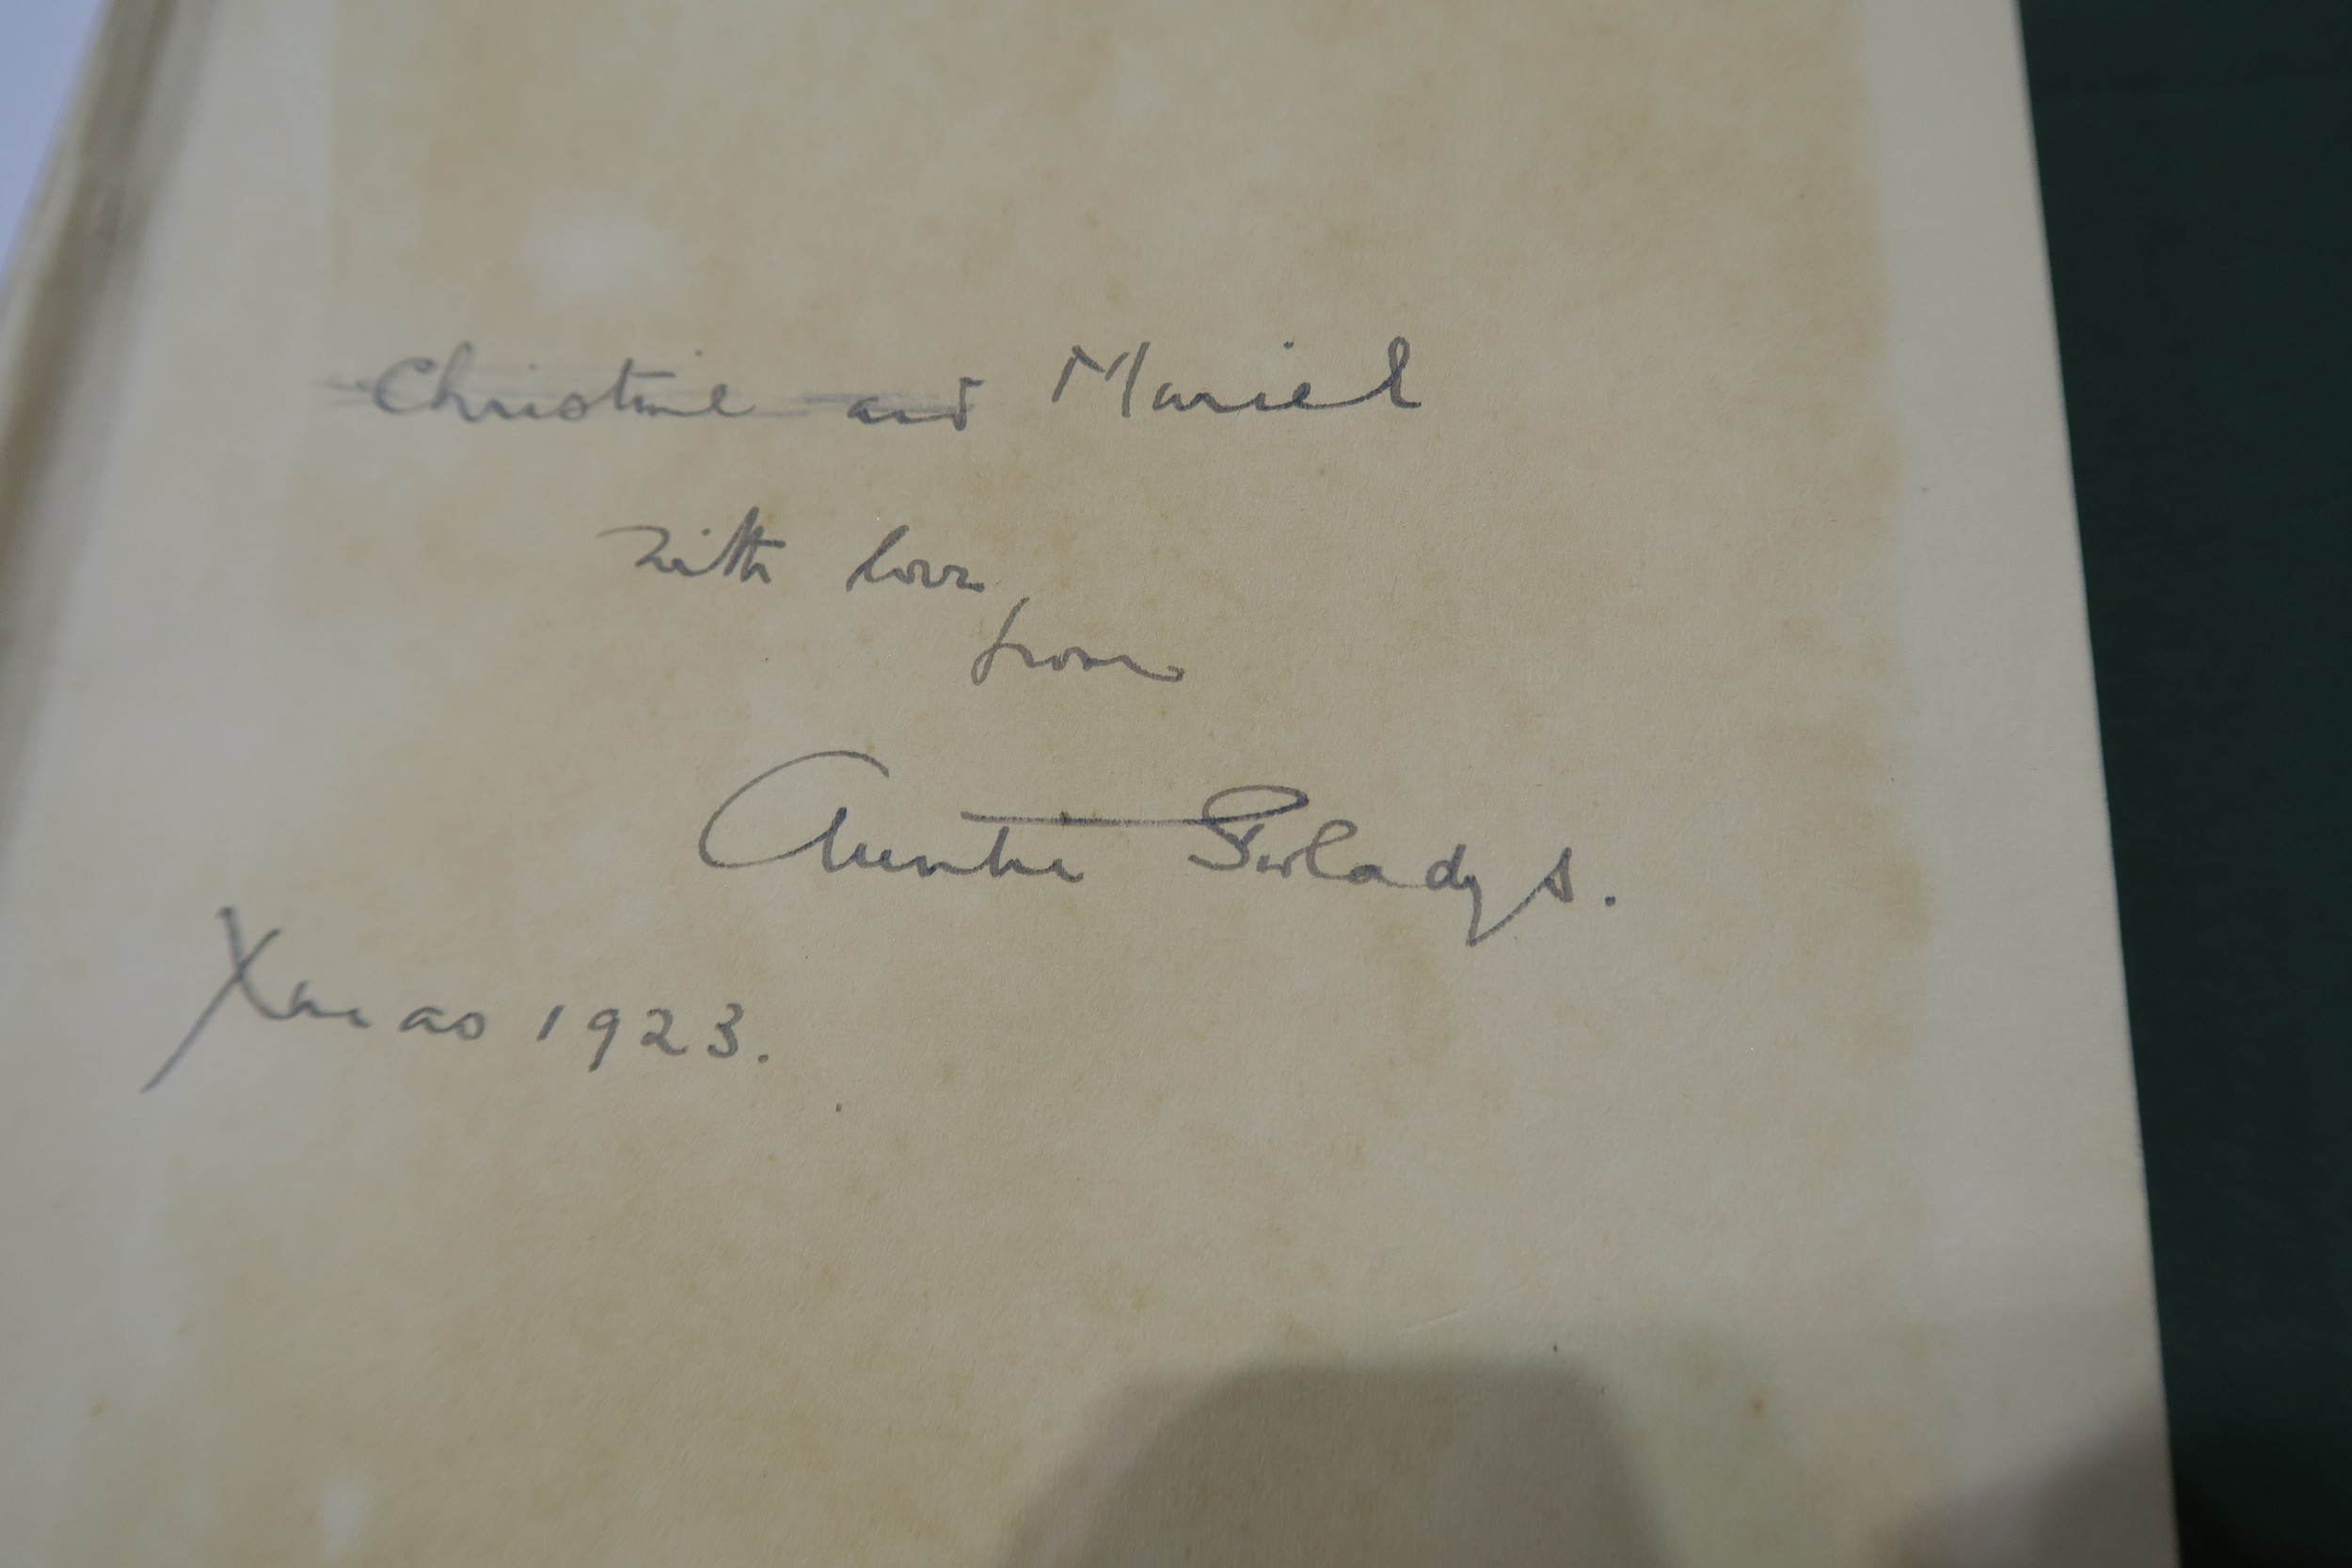 Christine and Mariel
with love
from
Auntie Gwladys.
Xmas 1923.